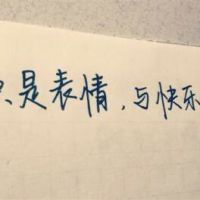 是表情，与快乐